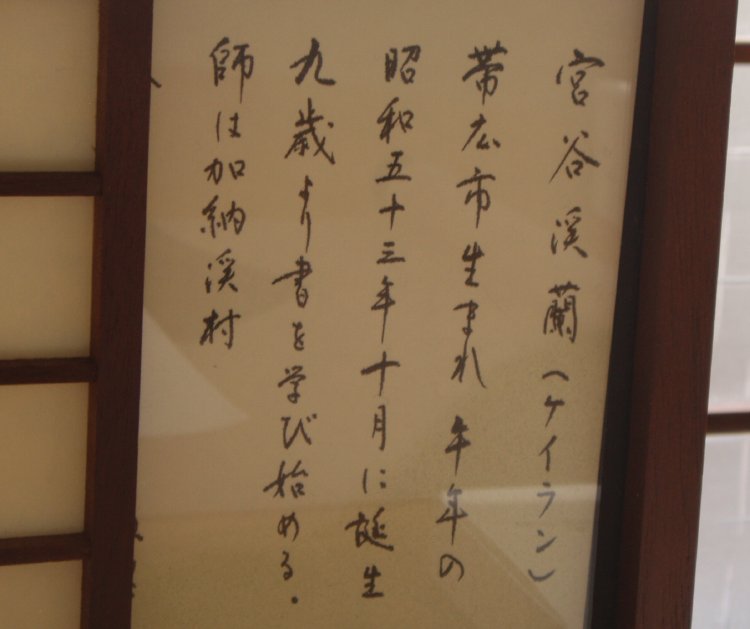 宮谷渓蘭（ケイラン）
帯広市生まれ 午年の
昭和五十三年十月に誕生
九歳より書を学び始める．
師は加納渓村